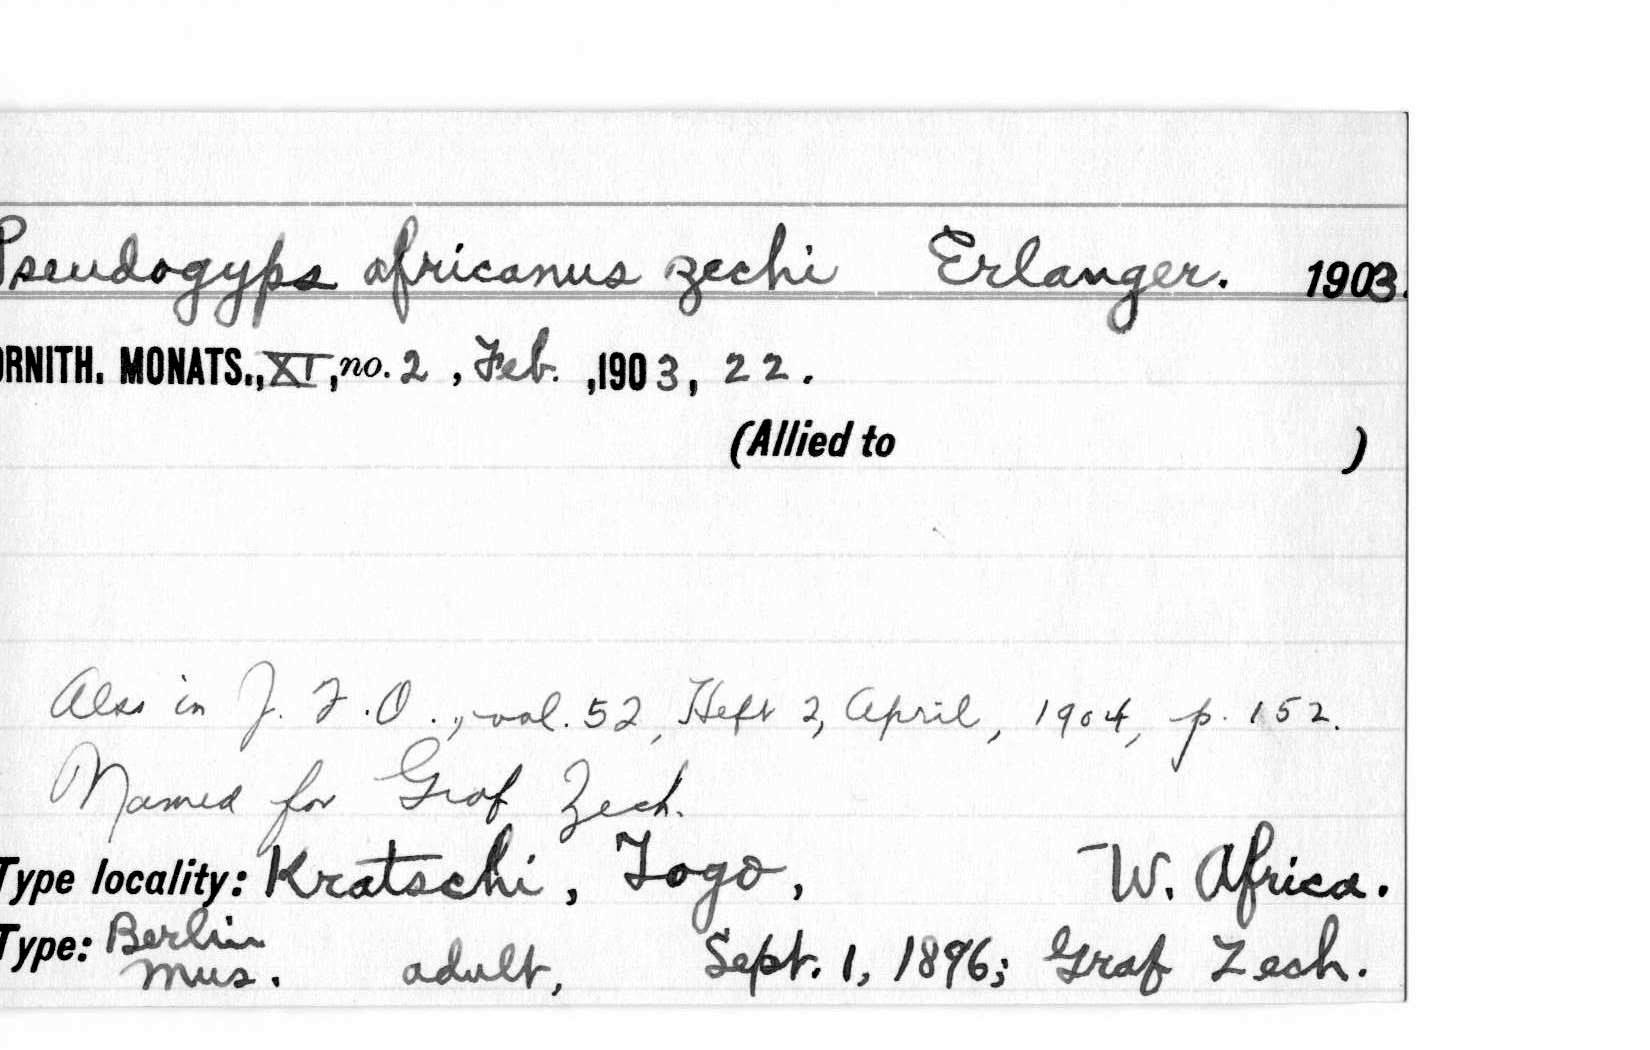 Pseudogyps africanus zechi Erlanger. 1903.
ORNITH. MONATS., XI, no. 2, Feb. ,1903, 22.
(Allied to )
Also in J. F. O., vol. 52, Heft 2, April, 1904, p. 152.
Named for Graf Zech.
Type locality: Kratschi, Togo, W. Africa.
Type: Berlin Mus. adult, Sept. 1, 1896; Graf Zech.